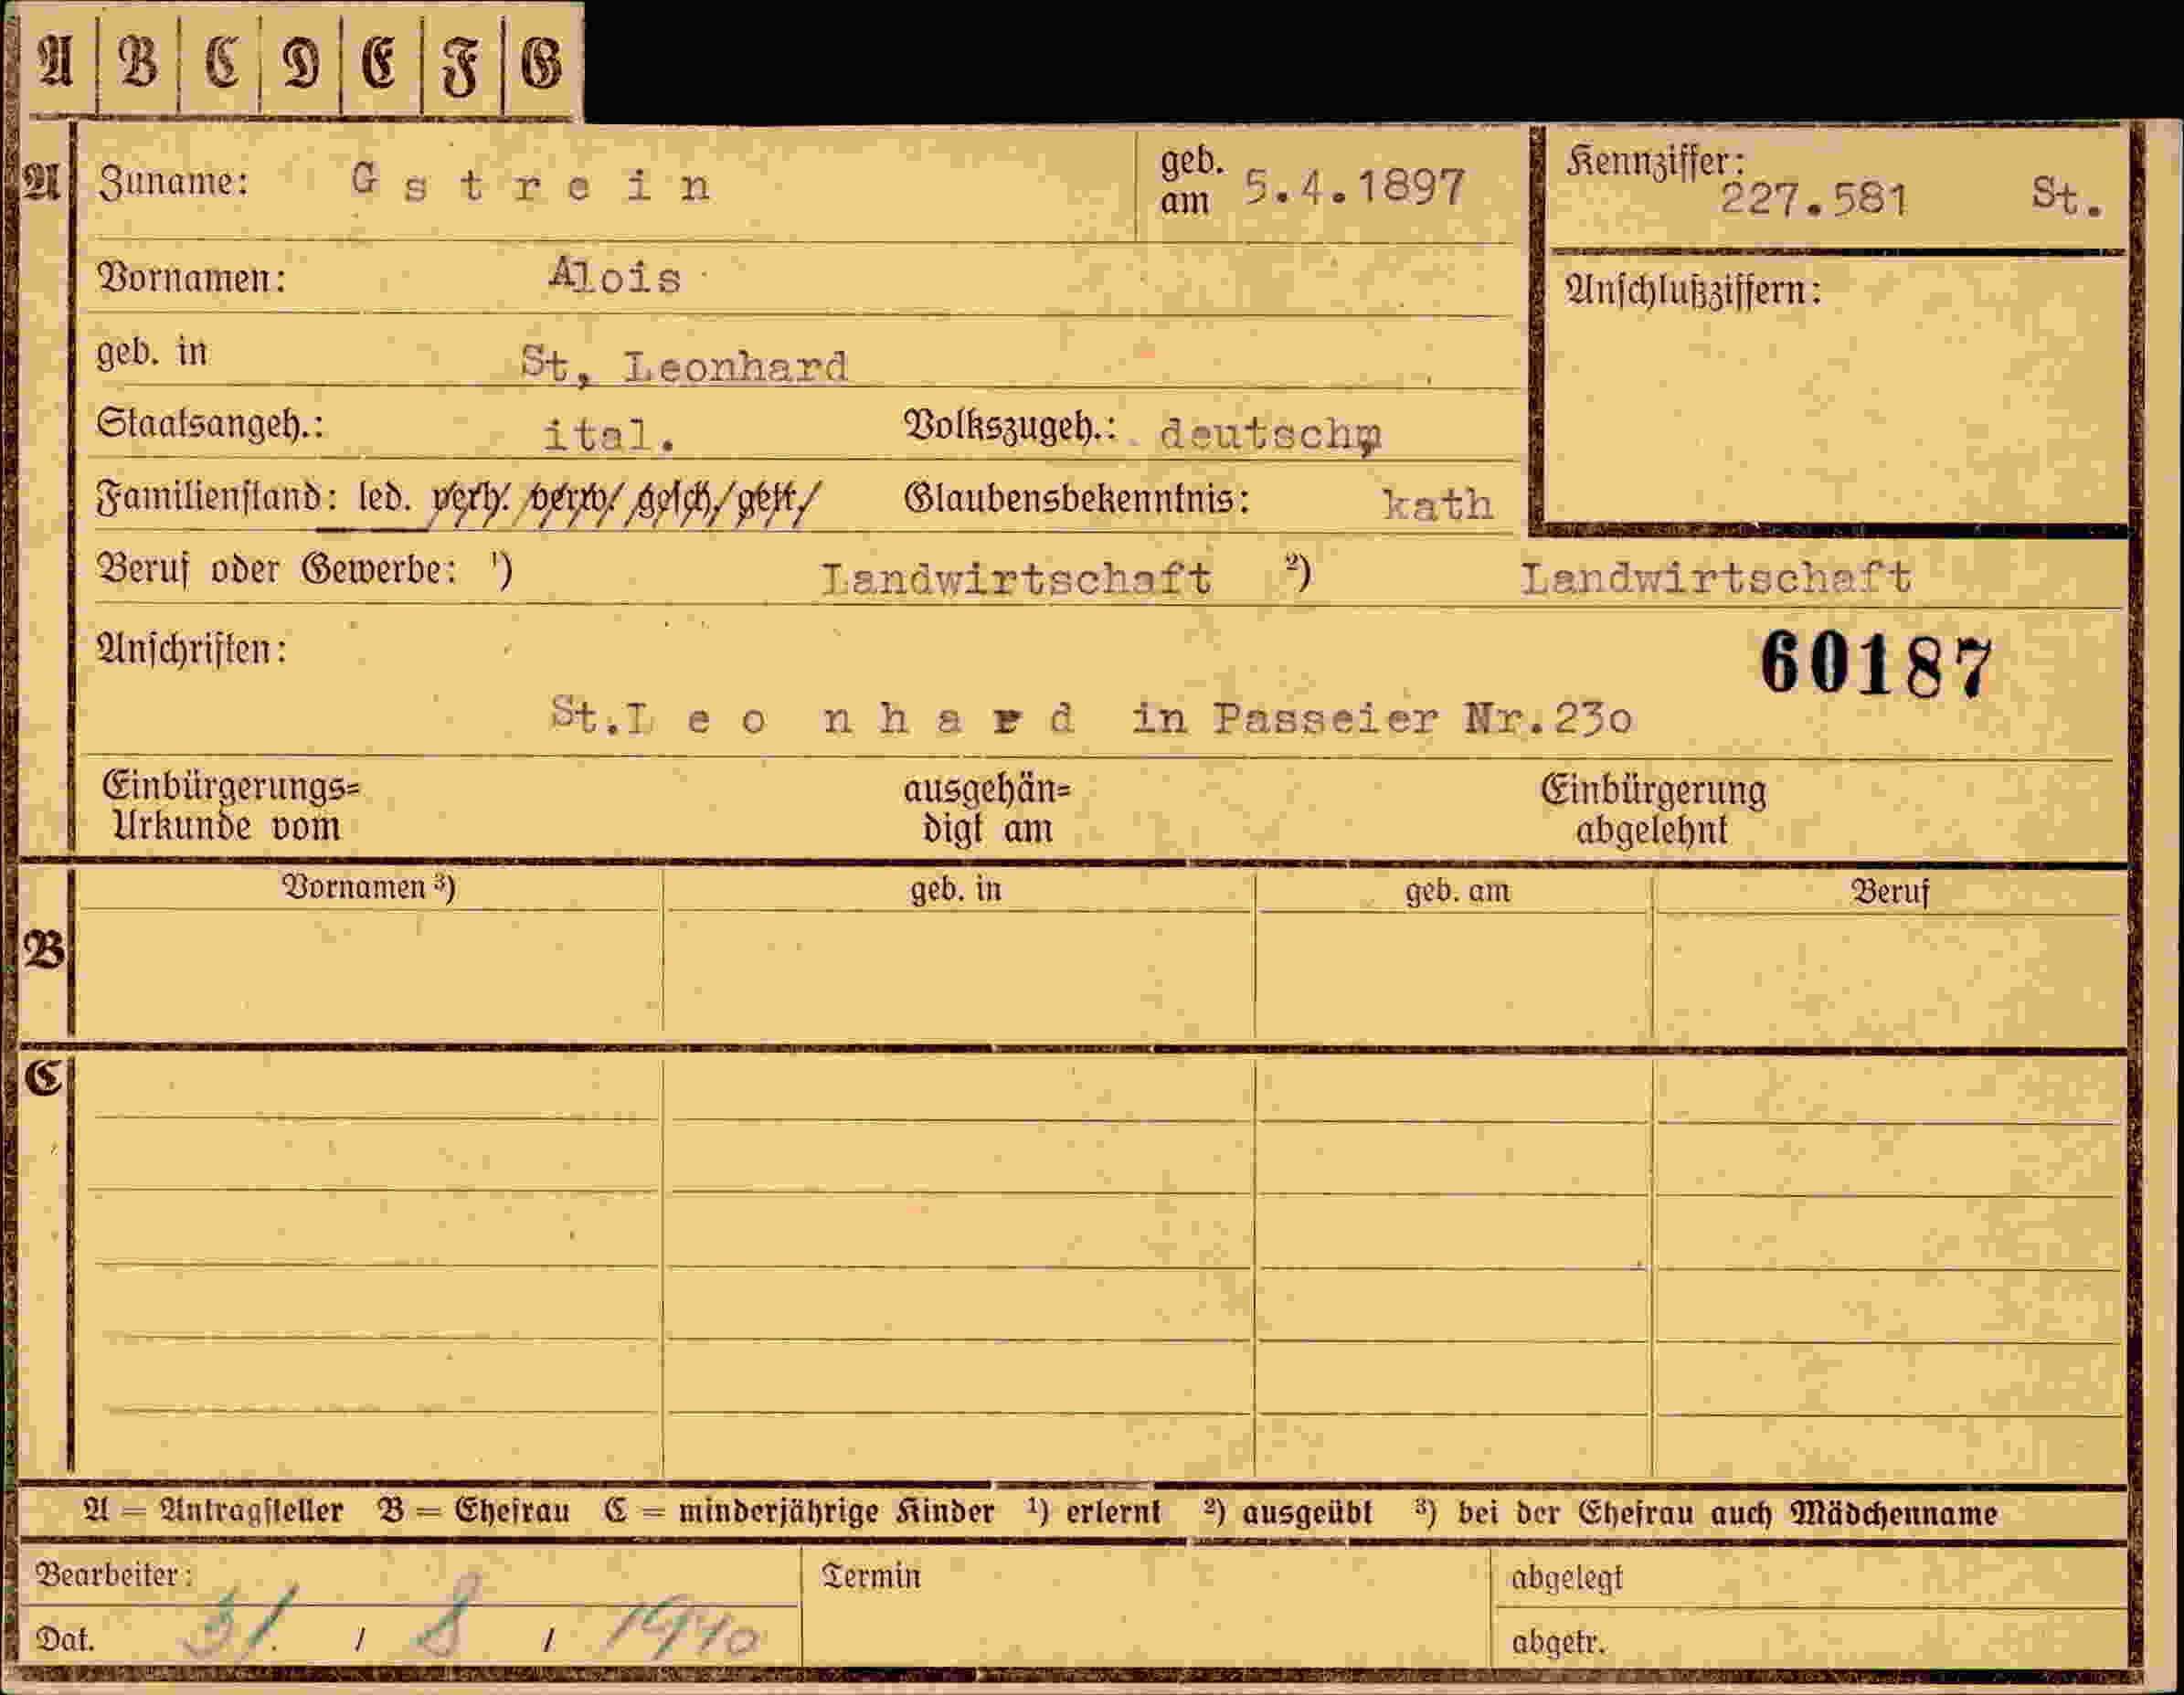 A B C D E F G
A Zuname: Gstrein geb. am 5.4.1897 Kennziffer: 227.581 St.
Vornamen: Alois Anschlußziffern:
geb. in St, Leonhard
Staatsangeh.: ital. Volkszugeh.: deutsch
Familienstand: led. verh. verw. gesch. getr. Glaubensbekenntnis: kath
Beruf oder Gewerbe: ¹) Landwirtschaft ²) Landwirtschaft
Anschriften: 60187
St.Leonhard in Passeier Nr.23o
Einbürgerungs= ausgehän= Einbürgerung
Urkunde vom digt am abgelehnt
Vornamen ³) geb. in geb. am Beruf
B
C
A = Antragsteller B = Ehefrau C = minderjährige Kinder ¹) erlernt ²) ausgeübt ³) bei der Ehefrau auch Mädchenname
Bearbeiter: Termin abgelegt
Dat. 31. / 8 / 1940 abgetr.